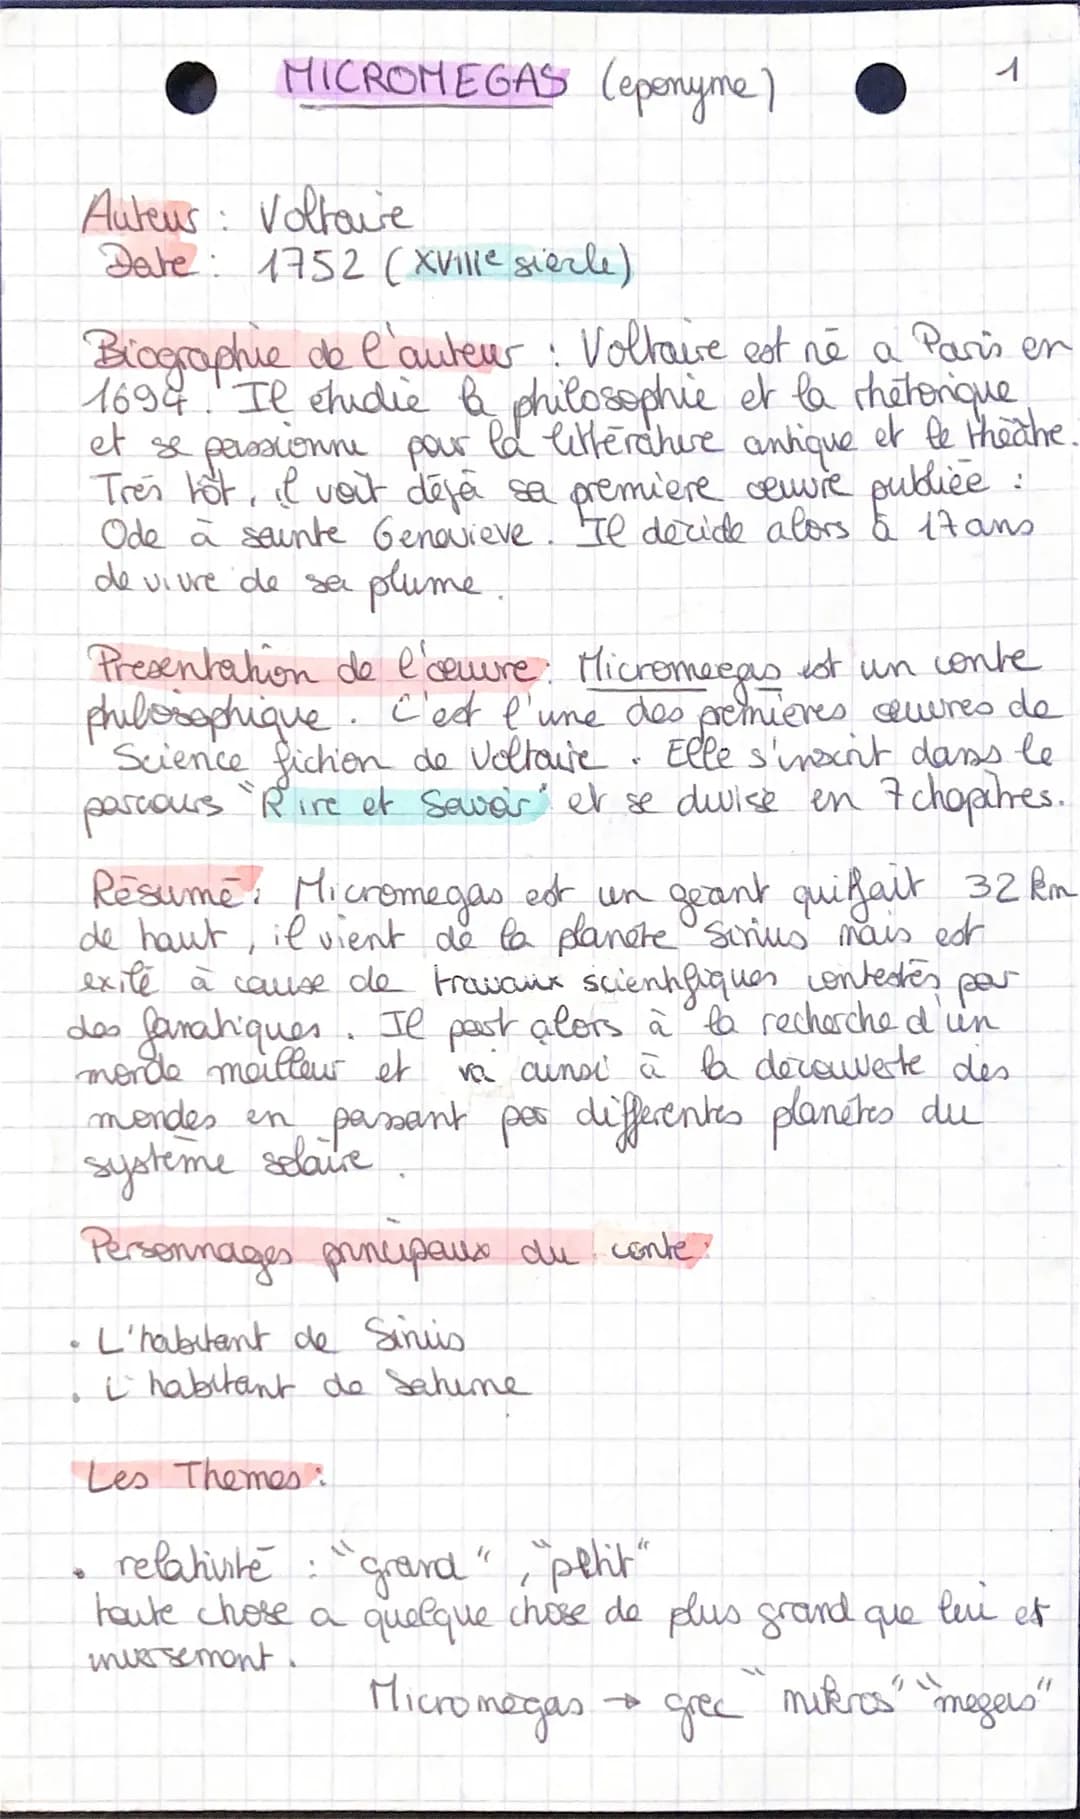 MICROMEGAS (eponyme) 1
Auteur : Voltaire
Date : 1752 (XVIIIe siècle)
Biographie de l'auteur : Voltaire est né a Paris en
1694. Il étudie la philosophie et la rhétorique
et se passionne pour la littérature antique et le théâtre.
Très tôt, il voit déjà sa premiere œuvre publiée :
Ode à sainte Genevieve. Il décide alors à 17 ans
de vivre de sa plume.
Presentation de l'œuvre : Micromegas est un conte
philosophique. C'est l'une des premières œuvres de
Science fiction de Voltaire. Elle s'inscrit dans le
parcours "Rire et Savoir" et se divise en 7 chapitres.
Résumé : Micromegas est un geant qui fait 32 km
de haut, il vient de la planète Sirius mais est
exilé à cause de travaux scientifiques contestés par
des fanatiques. Il part alors à la recherche d'un
monde meilleur et va ainsi à la découverte des
mondes en passant par differentes planètes du
système solaire.
Personnages principaux du conte :
• L'habitant de Sirius
• L'habitant de Saturne
Les Themes :
• relativité : "grand", "petit"
toute chose a quelque chose de plus grand que lui et
inversement.
Micromégas → grec "mikros" "megas"